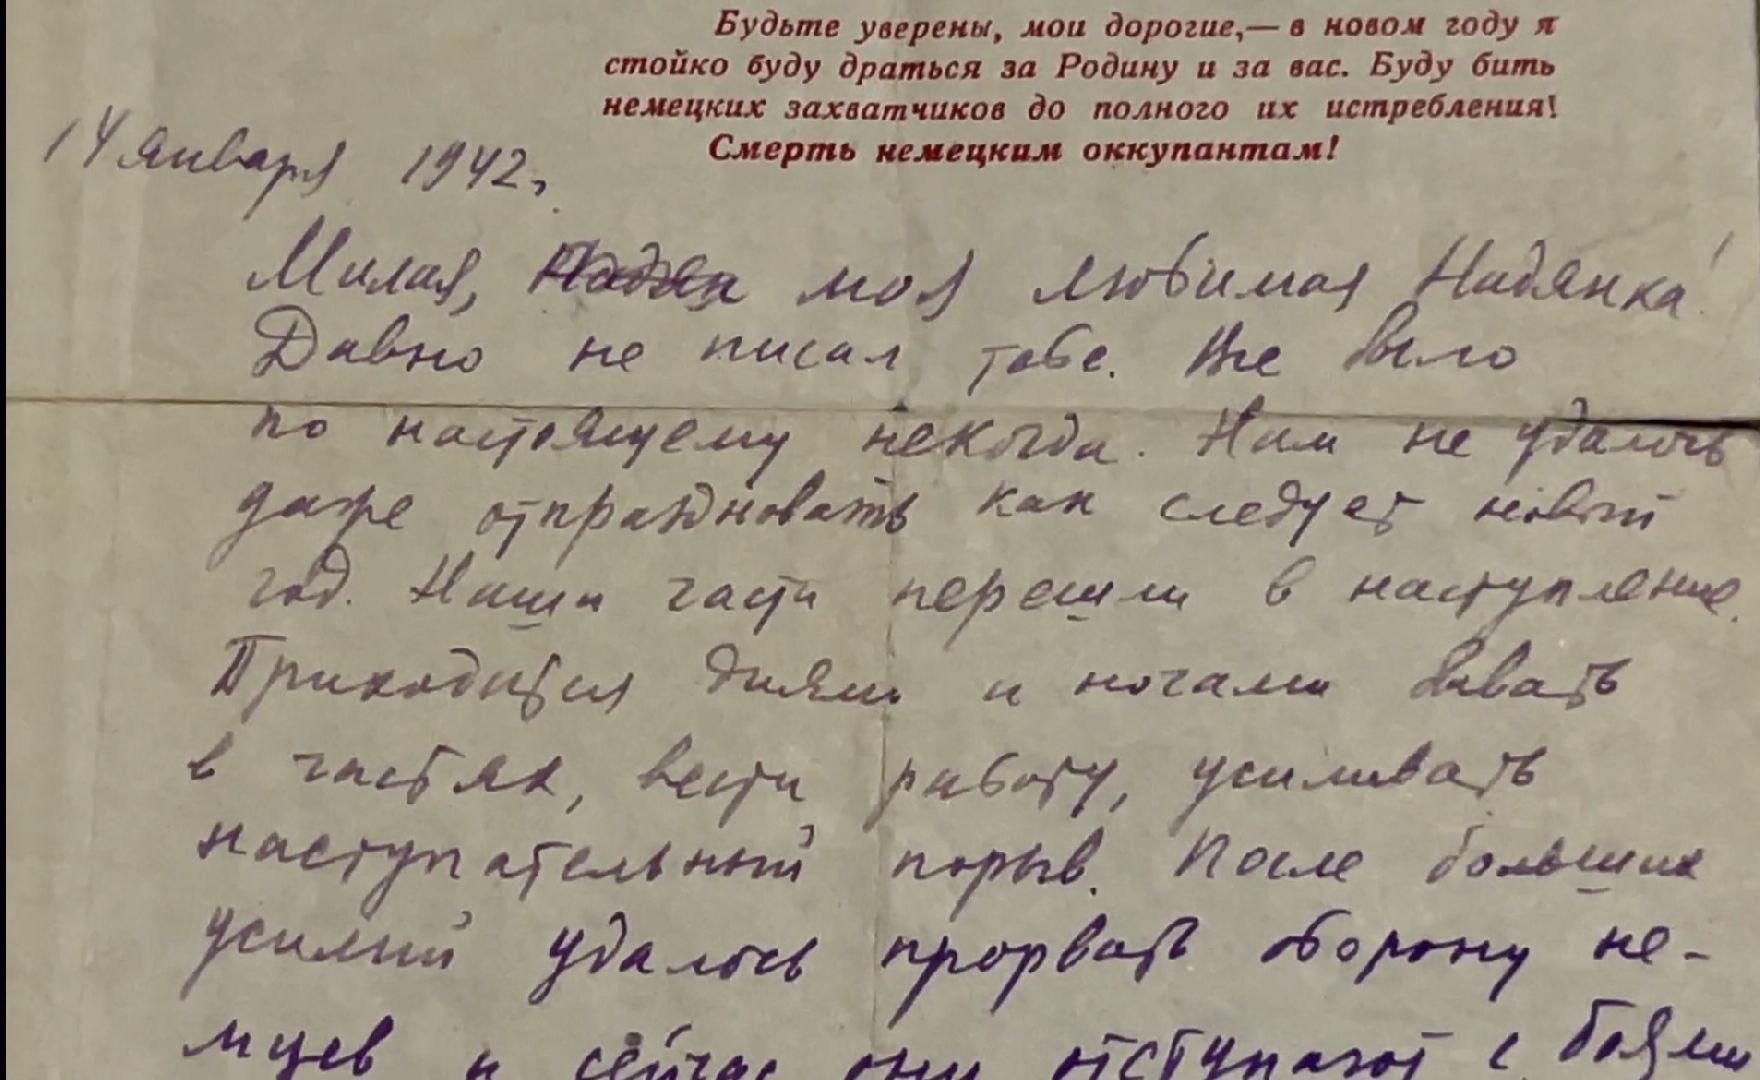 Будьте уверены, мои дорогие,— в новом году я
стойко буду драться за Родину и за вас. Буду бить
немецких захватчиков до полного их истребления!
Смерть немецким оккупантам!
14 января 1942,
Милая, моя любимая Надянка!
Давно не писал тебе. Не было
по настоящему некогда. Нам не удалось
даже отпраздновать как следует новый
год. Наши части перешли в наступление.
Приходится днями и ночами бывать
в частях, вести работу, усиливать
наступательный порыв. После больших
усилий удалось прорвать оборону не-
мцев и сейчас они отступают с боями